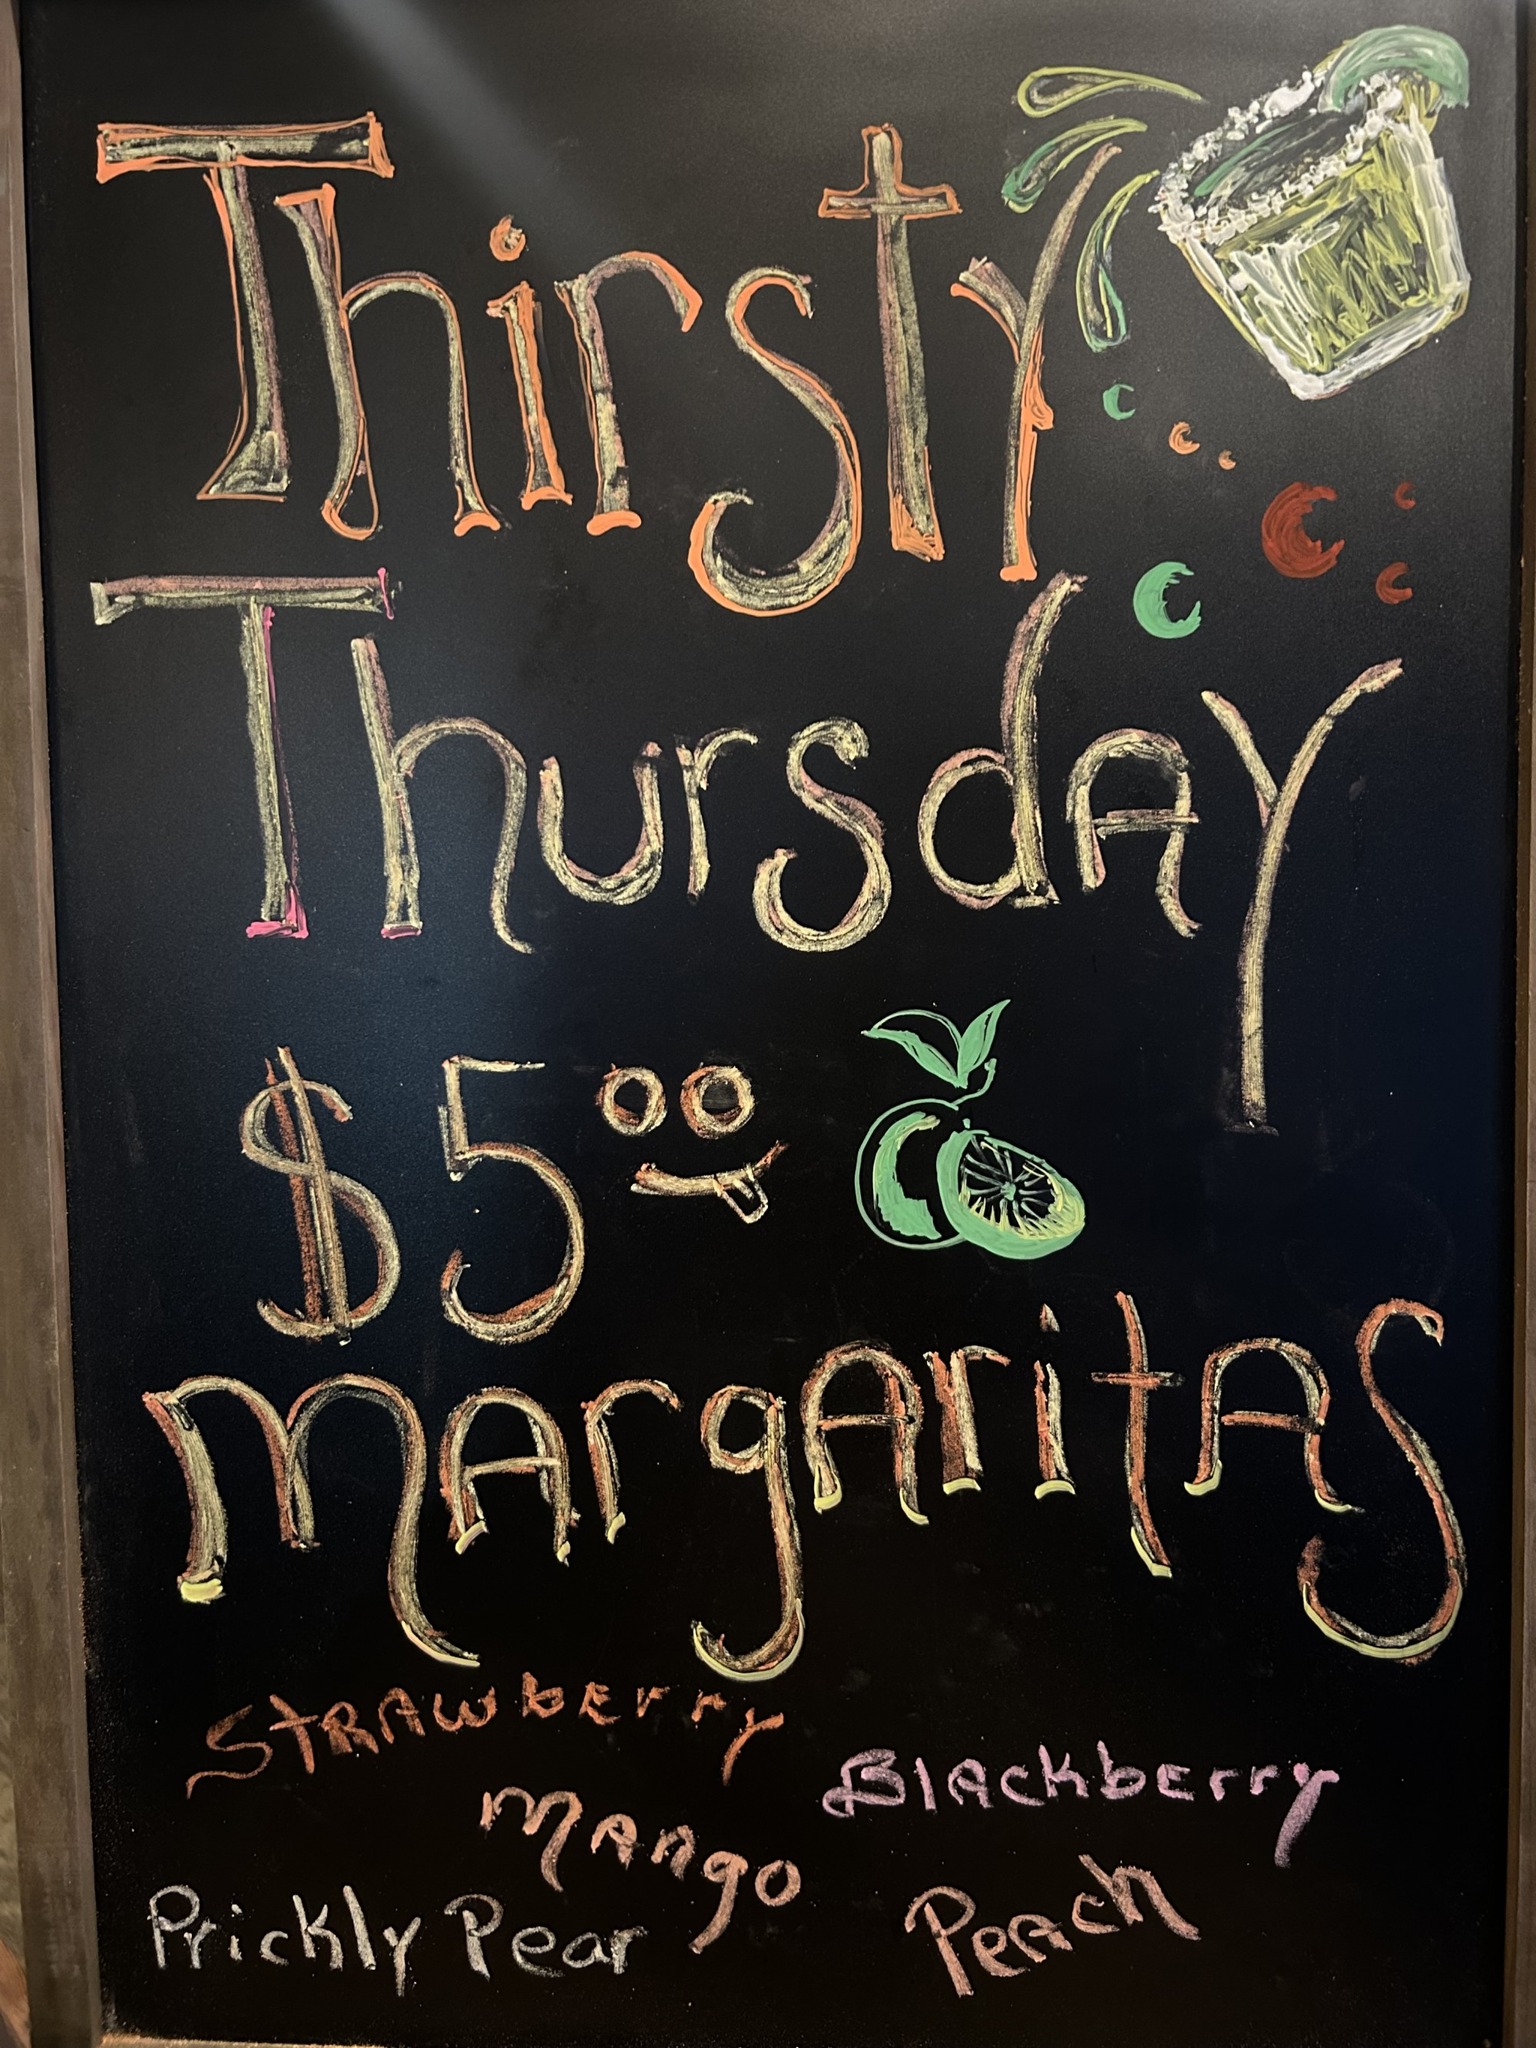 Thirsty
Thursday
$5 00
Margaritas
Strawberry
Blackberry
Mango
Prickly Pear
Peach